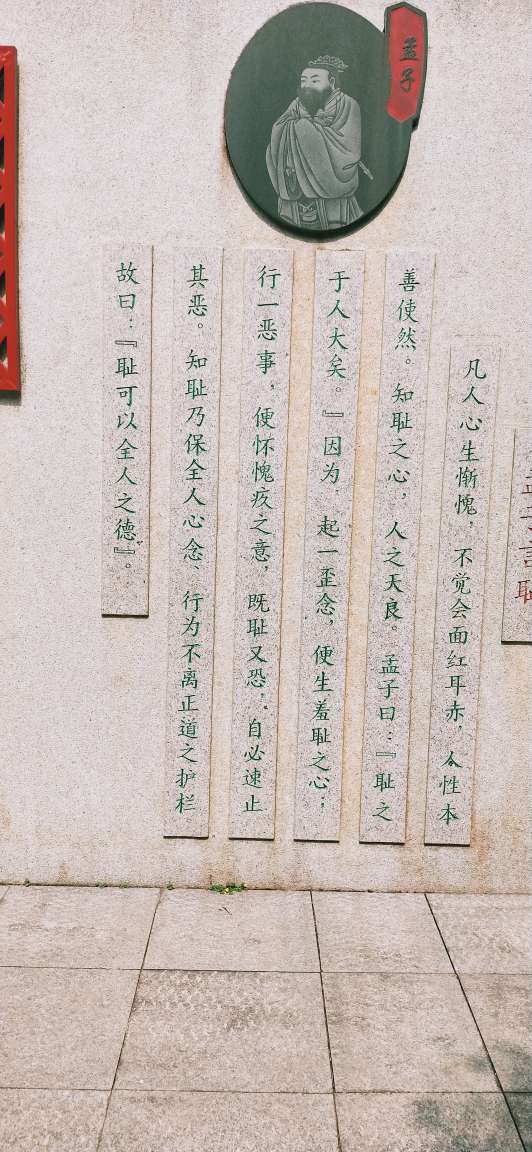 孟子
孟子言耻
凡人心生惭愧，不觉会面红耳赤，人性本
善使然。知耻之心，人之天良。孟子曰：『耻之
于人大矣。』因为，起一歪念，便生羞耻之心；
行一恶事，便怀愧疚之意，既耻又恐，自必速止
其恶。知耻乃保全人心念、行为不离正道之护栏
故曰：『耻可以全人之德』。